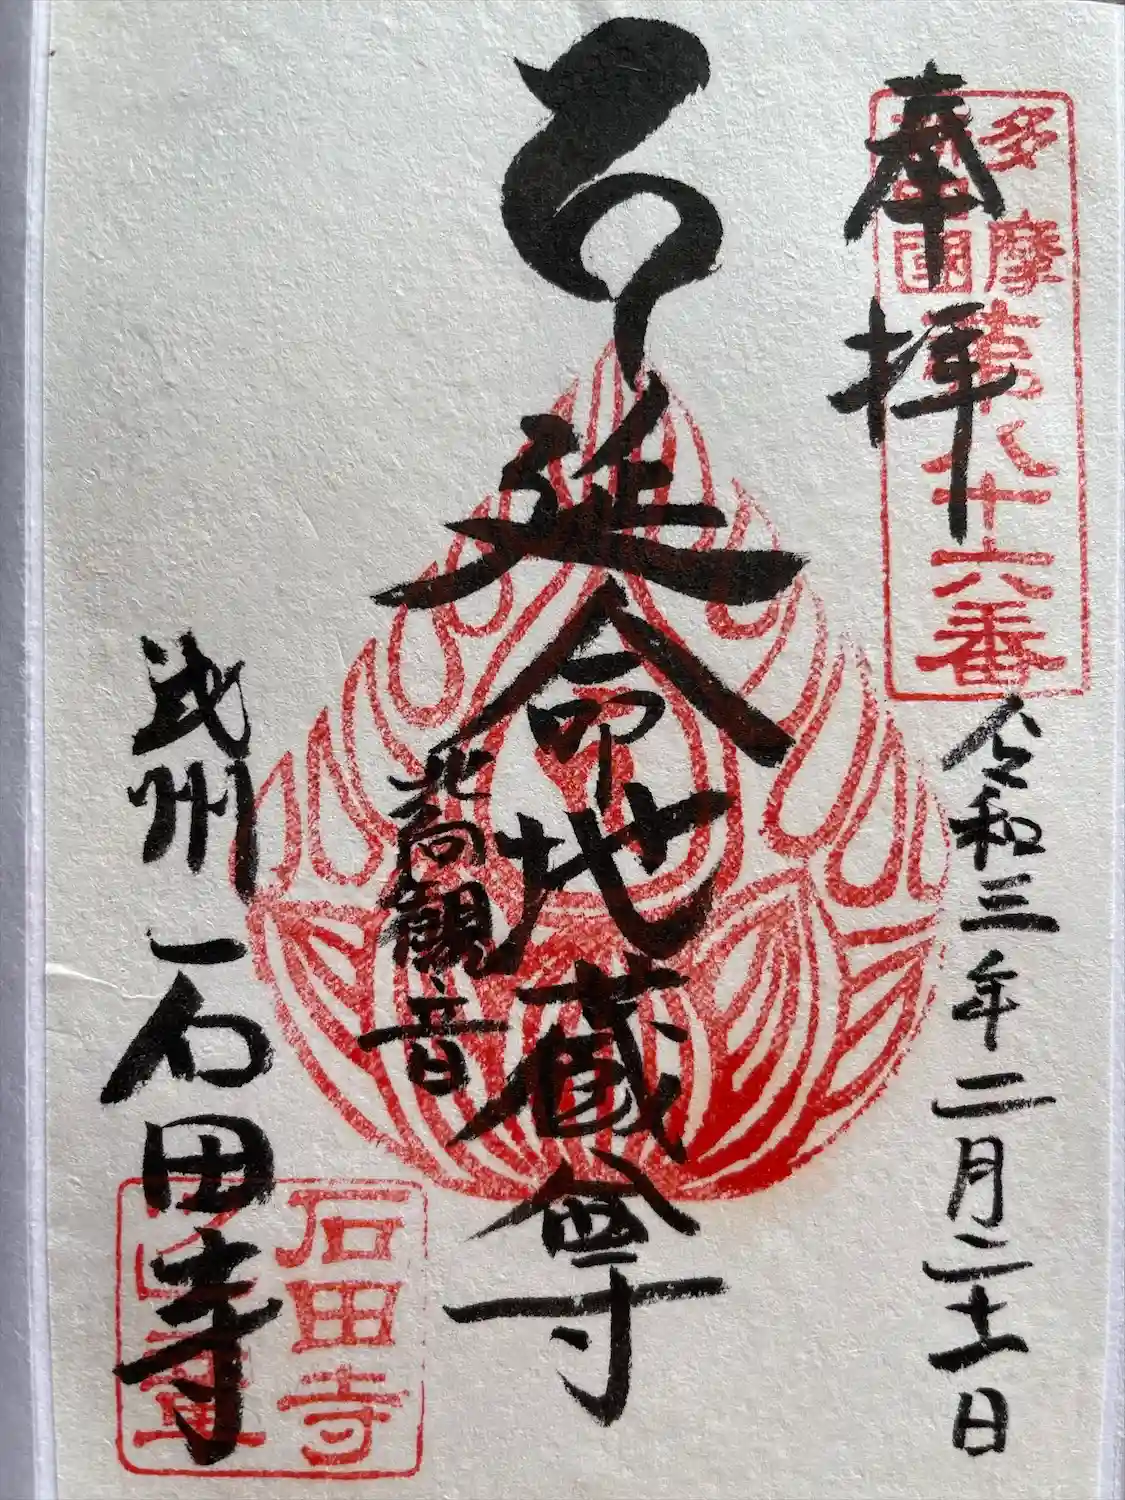 奉拝
多摩
國
第八十六番
令和三年二月二十一日
延命地蔵尊
北向観音
武州 石田寺
石田寺